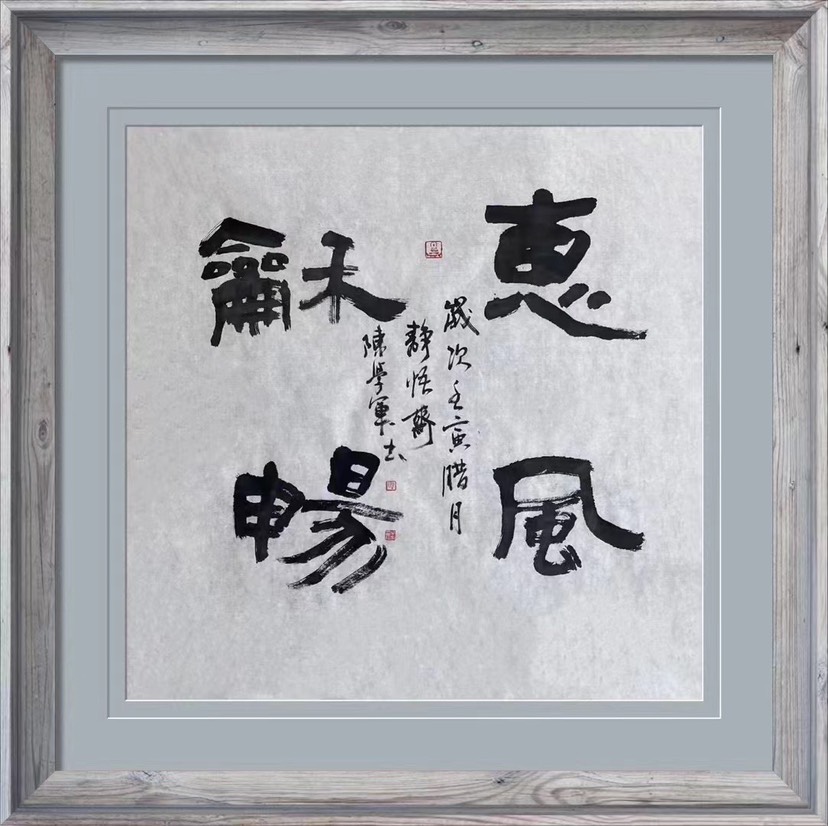 惠風
龢暢
歲次壬寅腊月
靜悟齋
陳學軍書